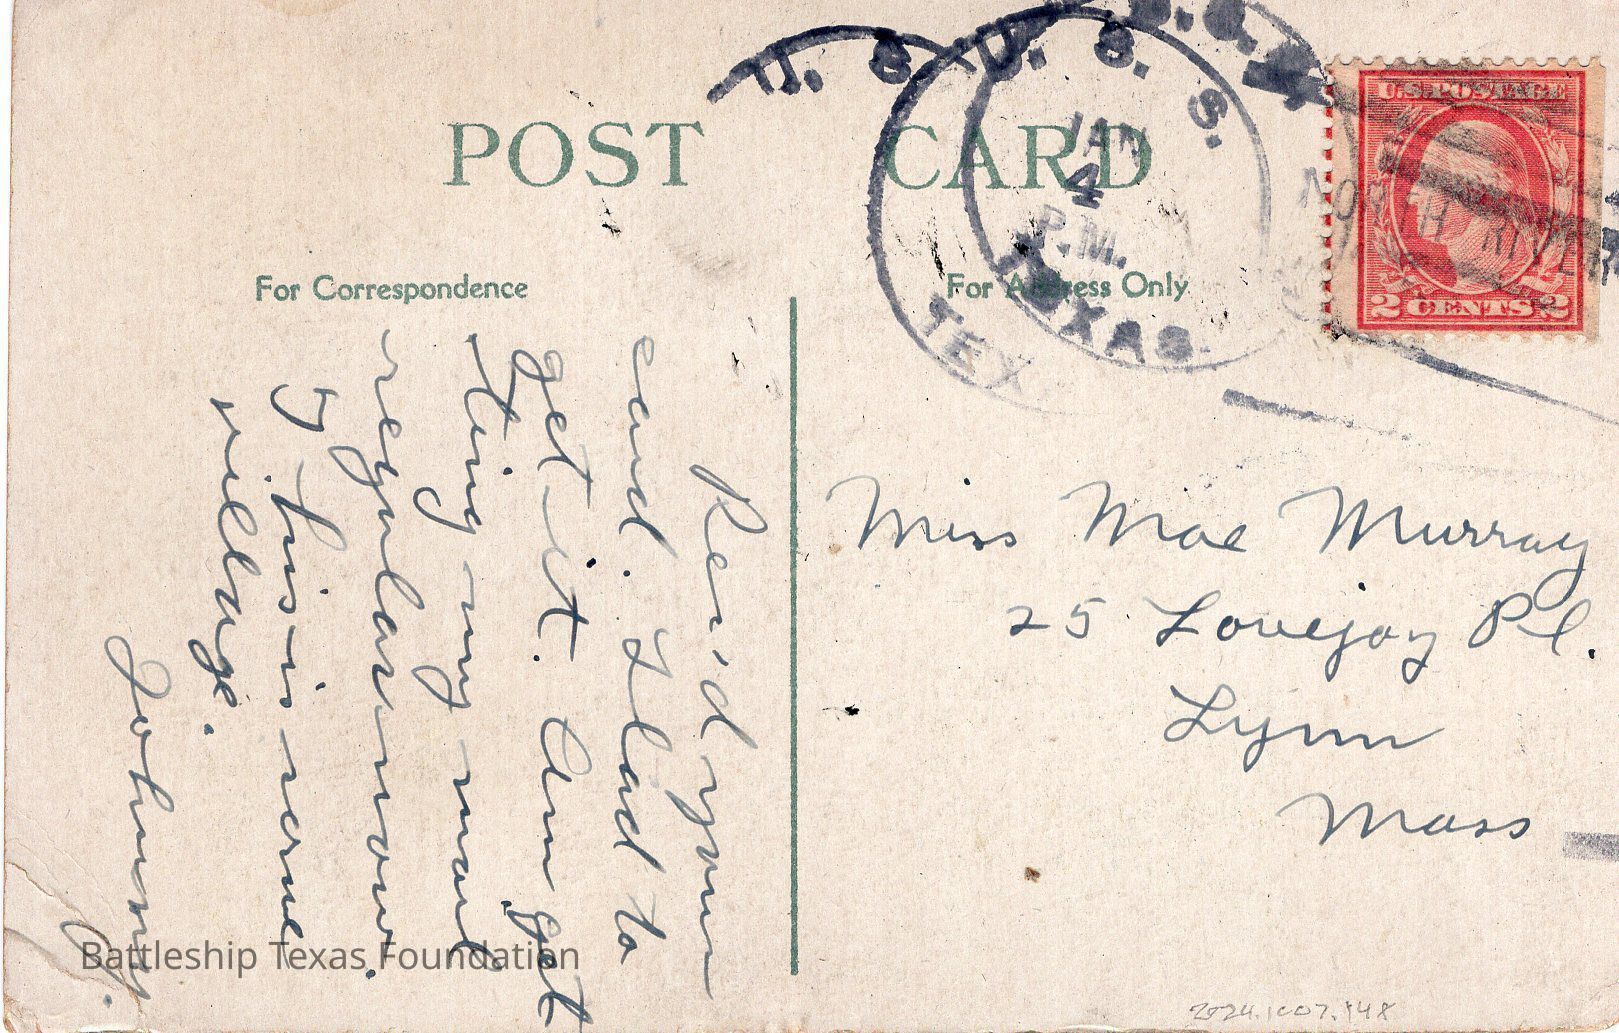 POST CARD
For Correspondence
For Address Only
U. S.
U. S. S.
JAN
4
P.M.
TEXAS.
TEX
NORTH RIVER
U.S. POSTAGE
2 CENTS 2
Rec'd your
card. Glad to
get it. Am get
ting my mail
regular now.
village.
Johnny.
Miss Mae Murray
25 Lovejoy Pl.
Lynn
Mass
Battleship Texas Foundation
2024.1007.148